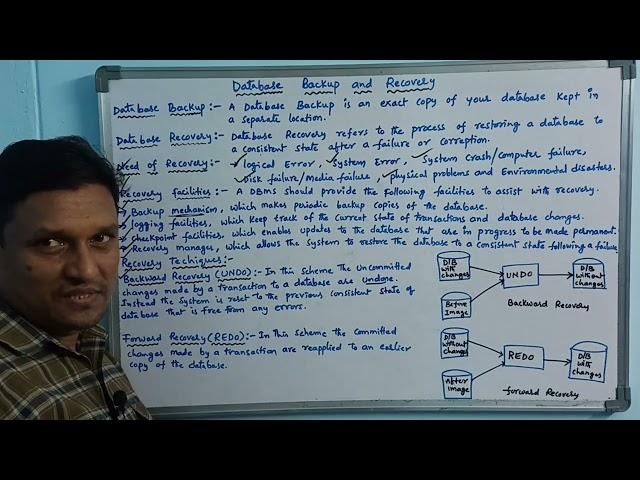 Database Backup and Recovery
Database Backup:- A Database Backup is an exact copy of your database kept in
a separate location.
Database Recovery:- Database Recovery refers to the process of restoring a database to
a consistent state after a failure or correption.
Need of Recovery:- → logical Error, ✓ System Error, ✓ System Crash/computer failure,
✓ Disk failure/Media failure, ✓ physical problems and Environmental disasters.
Recovery facilities:- A DBMS should provide the following facilities to assist with recovery.
→ Backup mechanism, which makes periodic backup copies of the database.
→ logging facilities, which keep track of the current state of transactions and database changes.
→ checkpoint facilities, which enables updates to the database that are in progress to be made permanent.
→ Recovery manager, which allows the system to restore the database to a consistent state following a failure
Recovery Techiques:-
Backward Recovery (UNDO):- In this scheme the uncommitted
changes made by a transaction to a database are undone.
Instead the system is reset to the previous consistent state of
database that is free from any errors.
Forward Recovery (REDO):- In this scheme the committed
changes made by a transaction are reapplied to an earlier
copy of the database.
D/B
with
changes
UNDO
D/B
without
changes
Before
Image
Backward Recovery
D/B
without
changes
REDO
D/B
with
changes
After
Image
forward Recovery